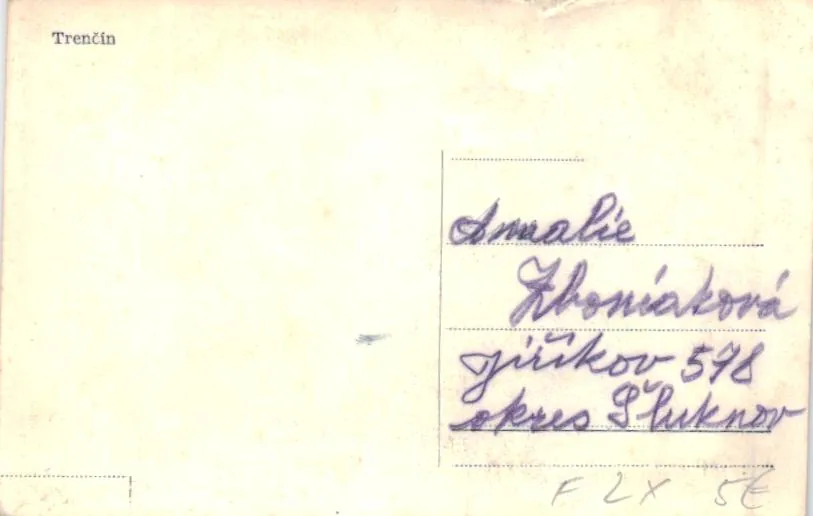 Trenčín
Amalie
Zboniaková
Jiříkov 578
okres Šluknov
F 2 X 5€